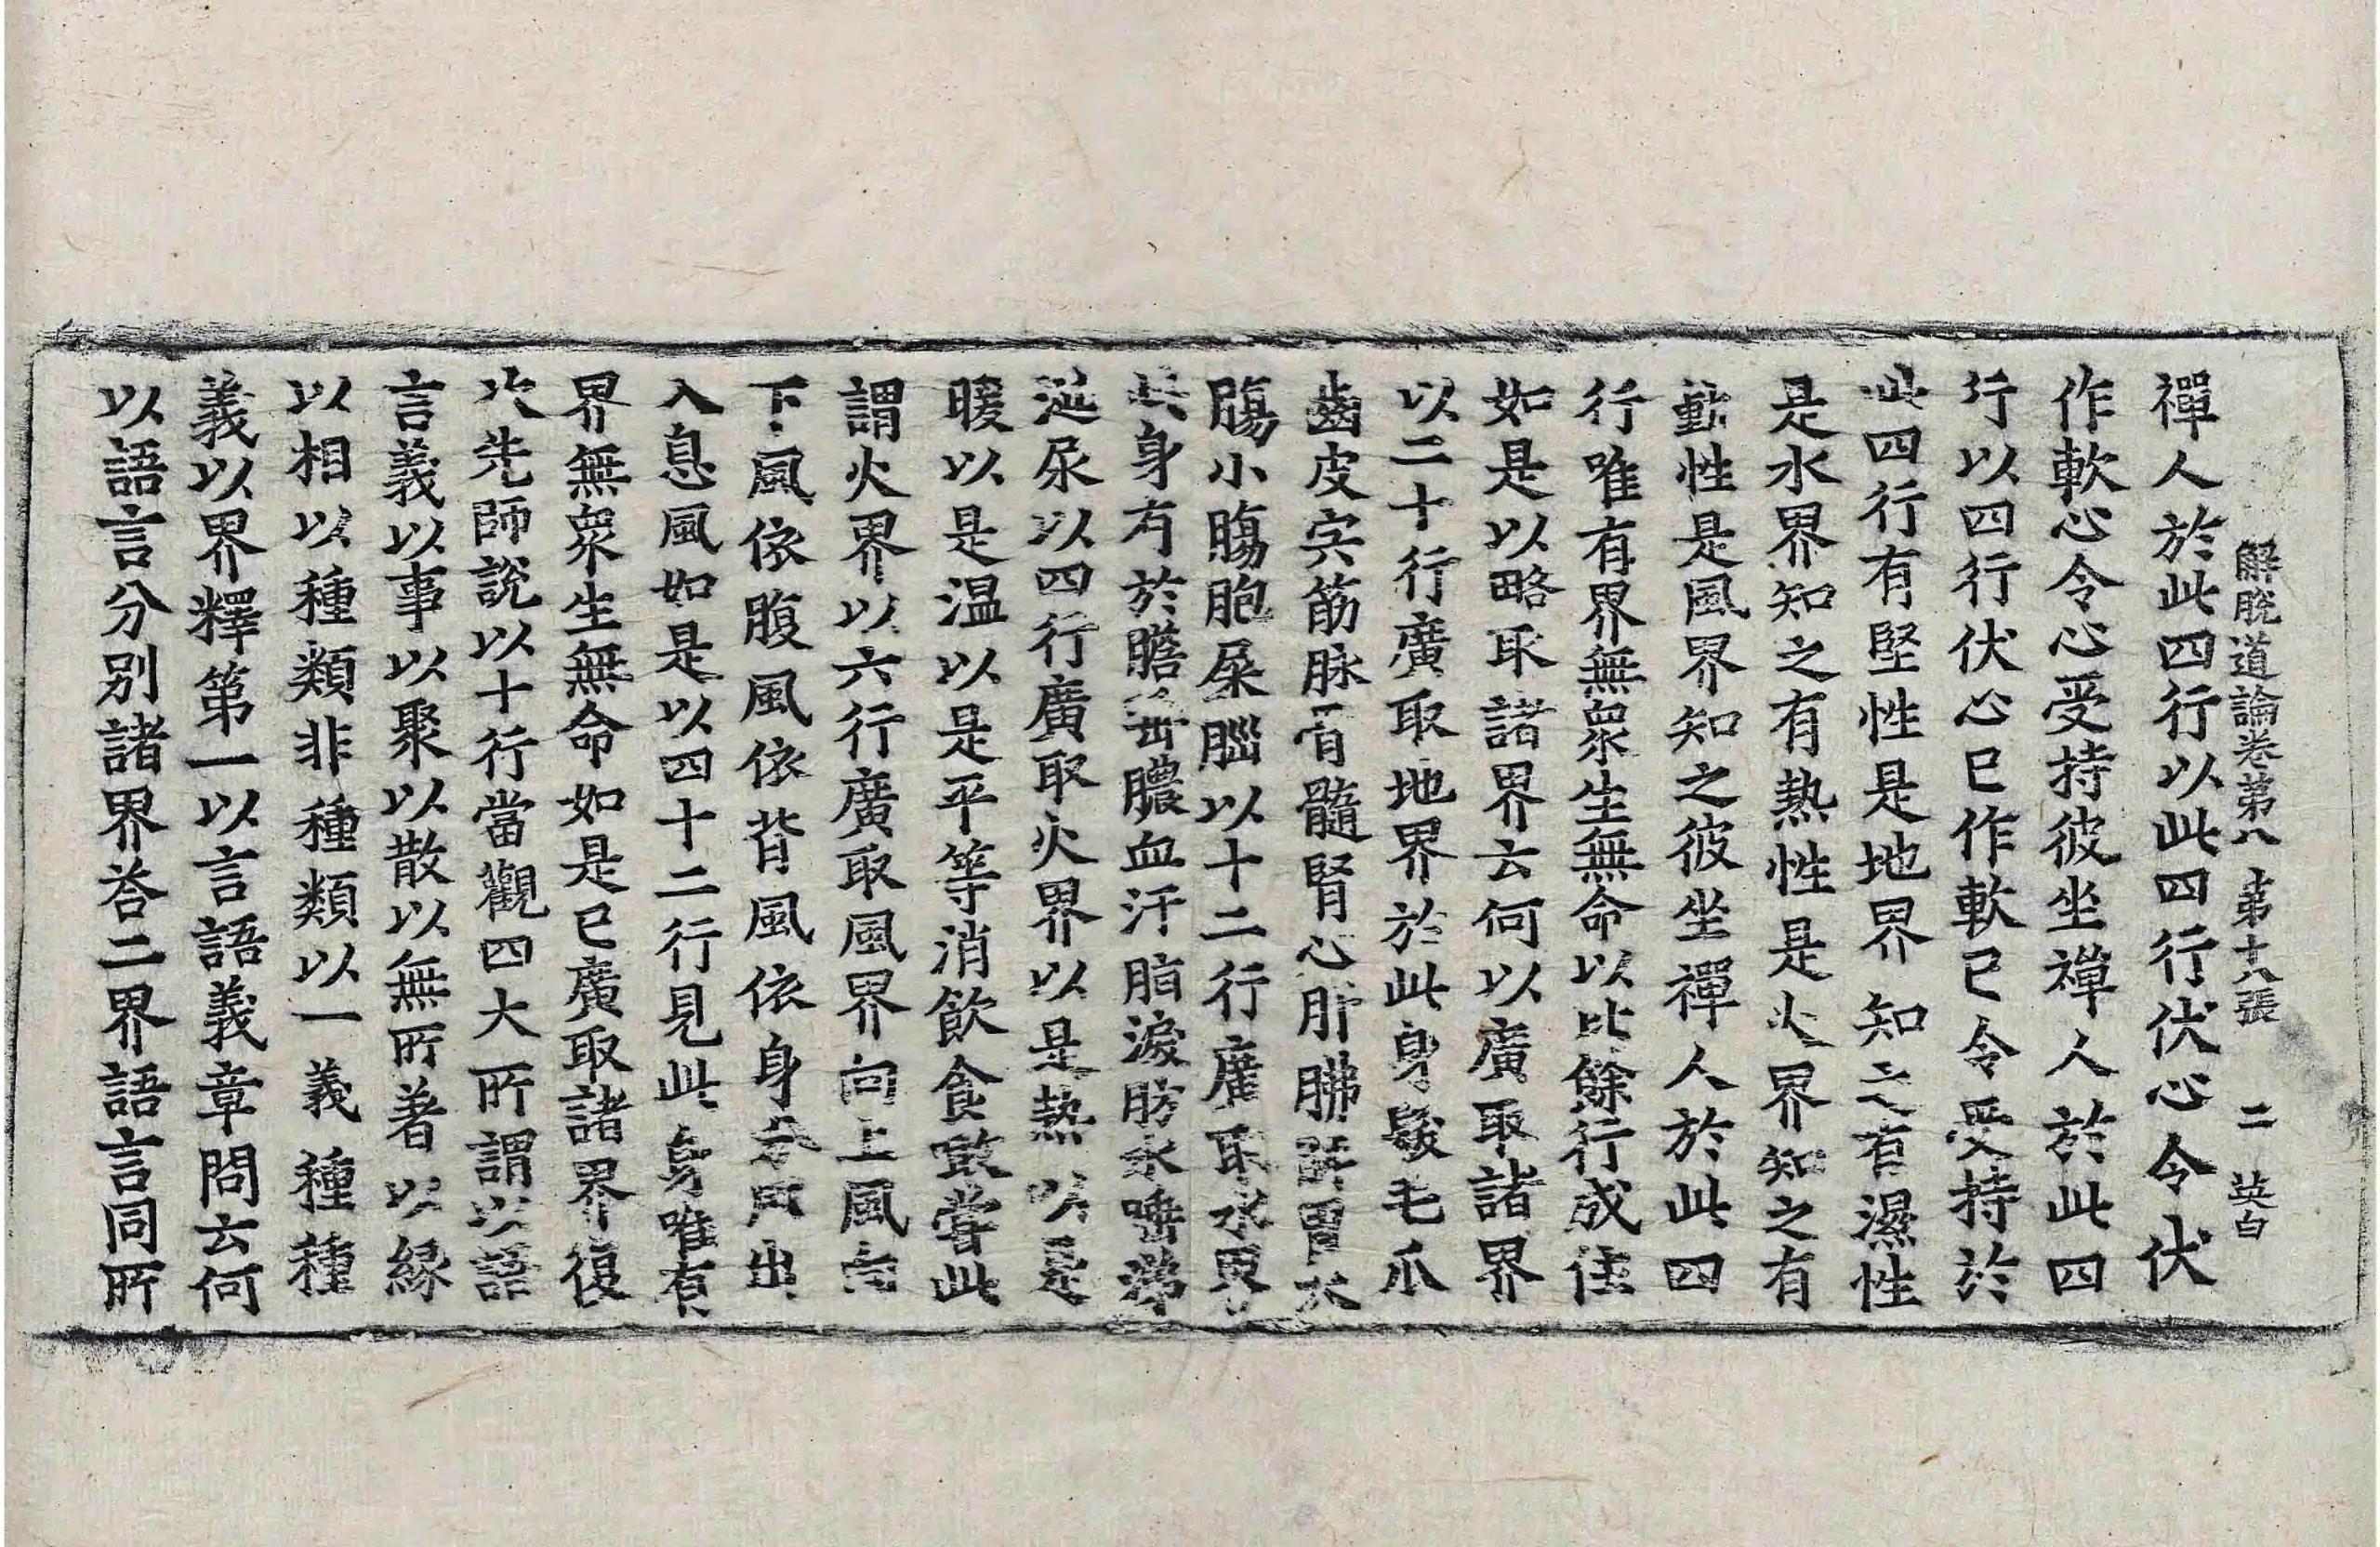 解脫道論卷第八 第十八張 二 英白
禪人於此四行以此四行伏心令伏
作軟心令心受持彼坐禪人於此四
行以四行伏心已作軟已令受持於
此四行有堅性是地界知之有濕性
是水界知之有熱性是火界知之有
動性是風界知之彼坐禪人於此四
行唯有界無眾生無命以比餘行成住
如是以略取諸界云何以廣取諸界
以二十行廣取地界於此身髮毛爪
齒皮宍筋脉骨髓腎心肝胇脾胃大
膓小膓胞屎腦以十二行廣取水界
此身有於膽唾膿血汗脂淚肪水唾涕
涎尿以四行廣取火界以是熱以是
暖以是温以是平等消飲食噉嘗此
謂火界以六行廣取風界向上風向
下風依腹風依背風依身分風出
入息風如是以四十二行見此身唯有
界無眾生無命如是已廣取諸界復
次先師說以十行當觀四大所謂以語
言義以事以聚以散以無所著以緣
以相以種類非種類以一義種種
義以界釋第一以言語義章問云何
以語言分別諸界荅二界語言同所